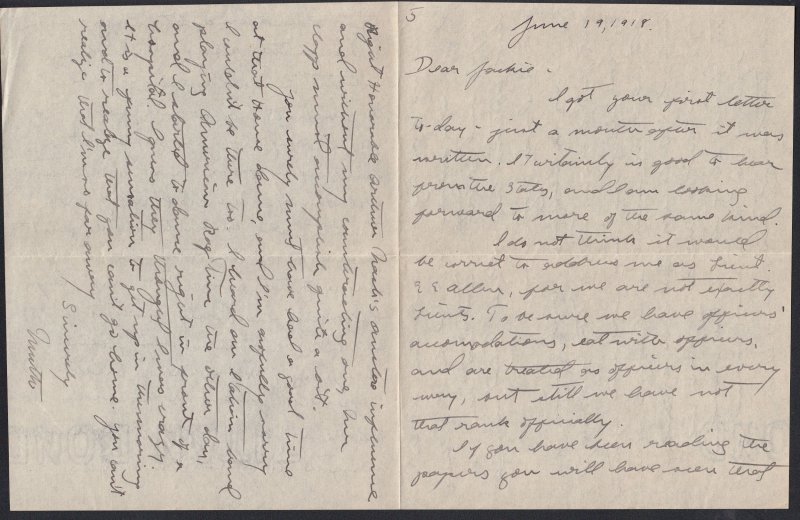 5
June 19, 1918.
Dear Jackie -
I got your first letter
to-day - just a month after it was
written. It certainly is good to hear
from the States, and I am looking
forward to more of the same kind.
I do not think it would
be correct to address me as Lieut.
Allen, for we are not exactly
Lieuts. To be sure we have officers'
accomodations, eat with officers,
and are treated as officers in every
way, but still we have not
that rank officially.
If you have been reading the
papers you will have seen that
Right Honorable Arthur influence
and without my one,
must accomplish quite a bit.
You surely must have had a good time
at that Home dance, and I'm awfully sorry
I couldn't be there too. I heard an Italian band
playing American Rag Time the other day,
and I started to dance right in front of a
hospital. I guess they thought I was crazy.
It is a funny sensation to get up in the morning
and to realize that you can't go home. You can't
realize that I'm so far away
Sincerely